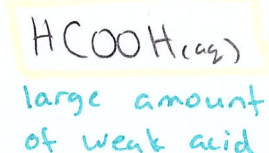 HCOOH(aq)
large amount
of weak acid